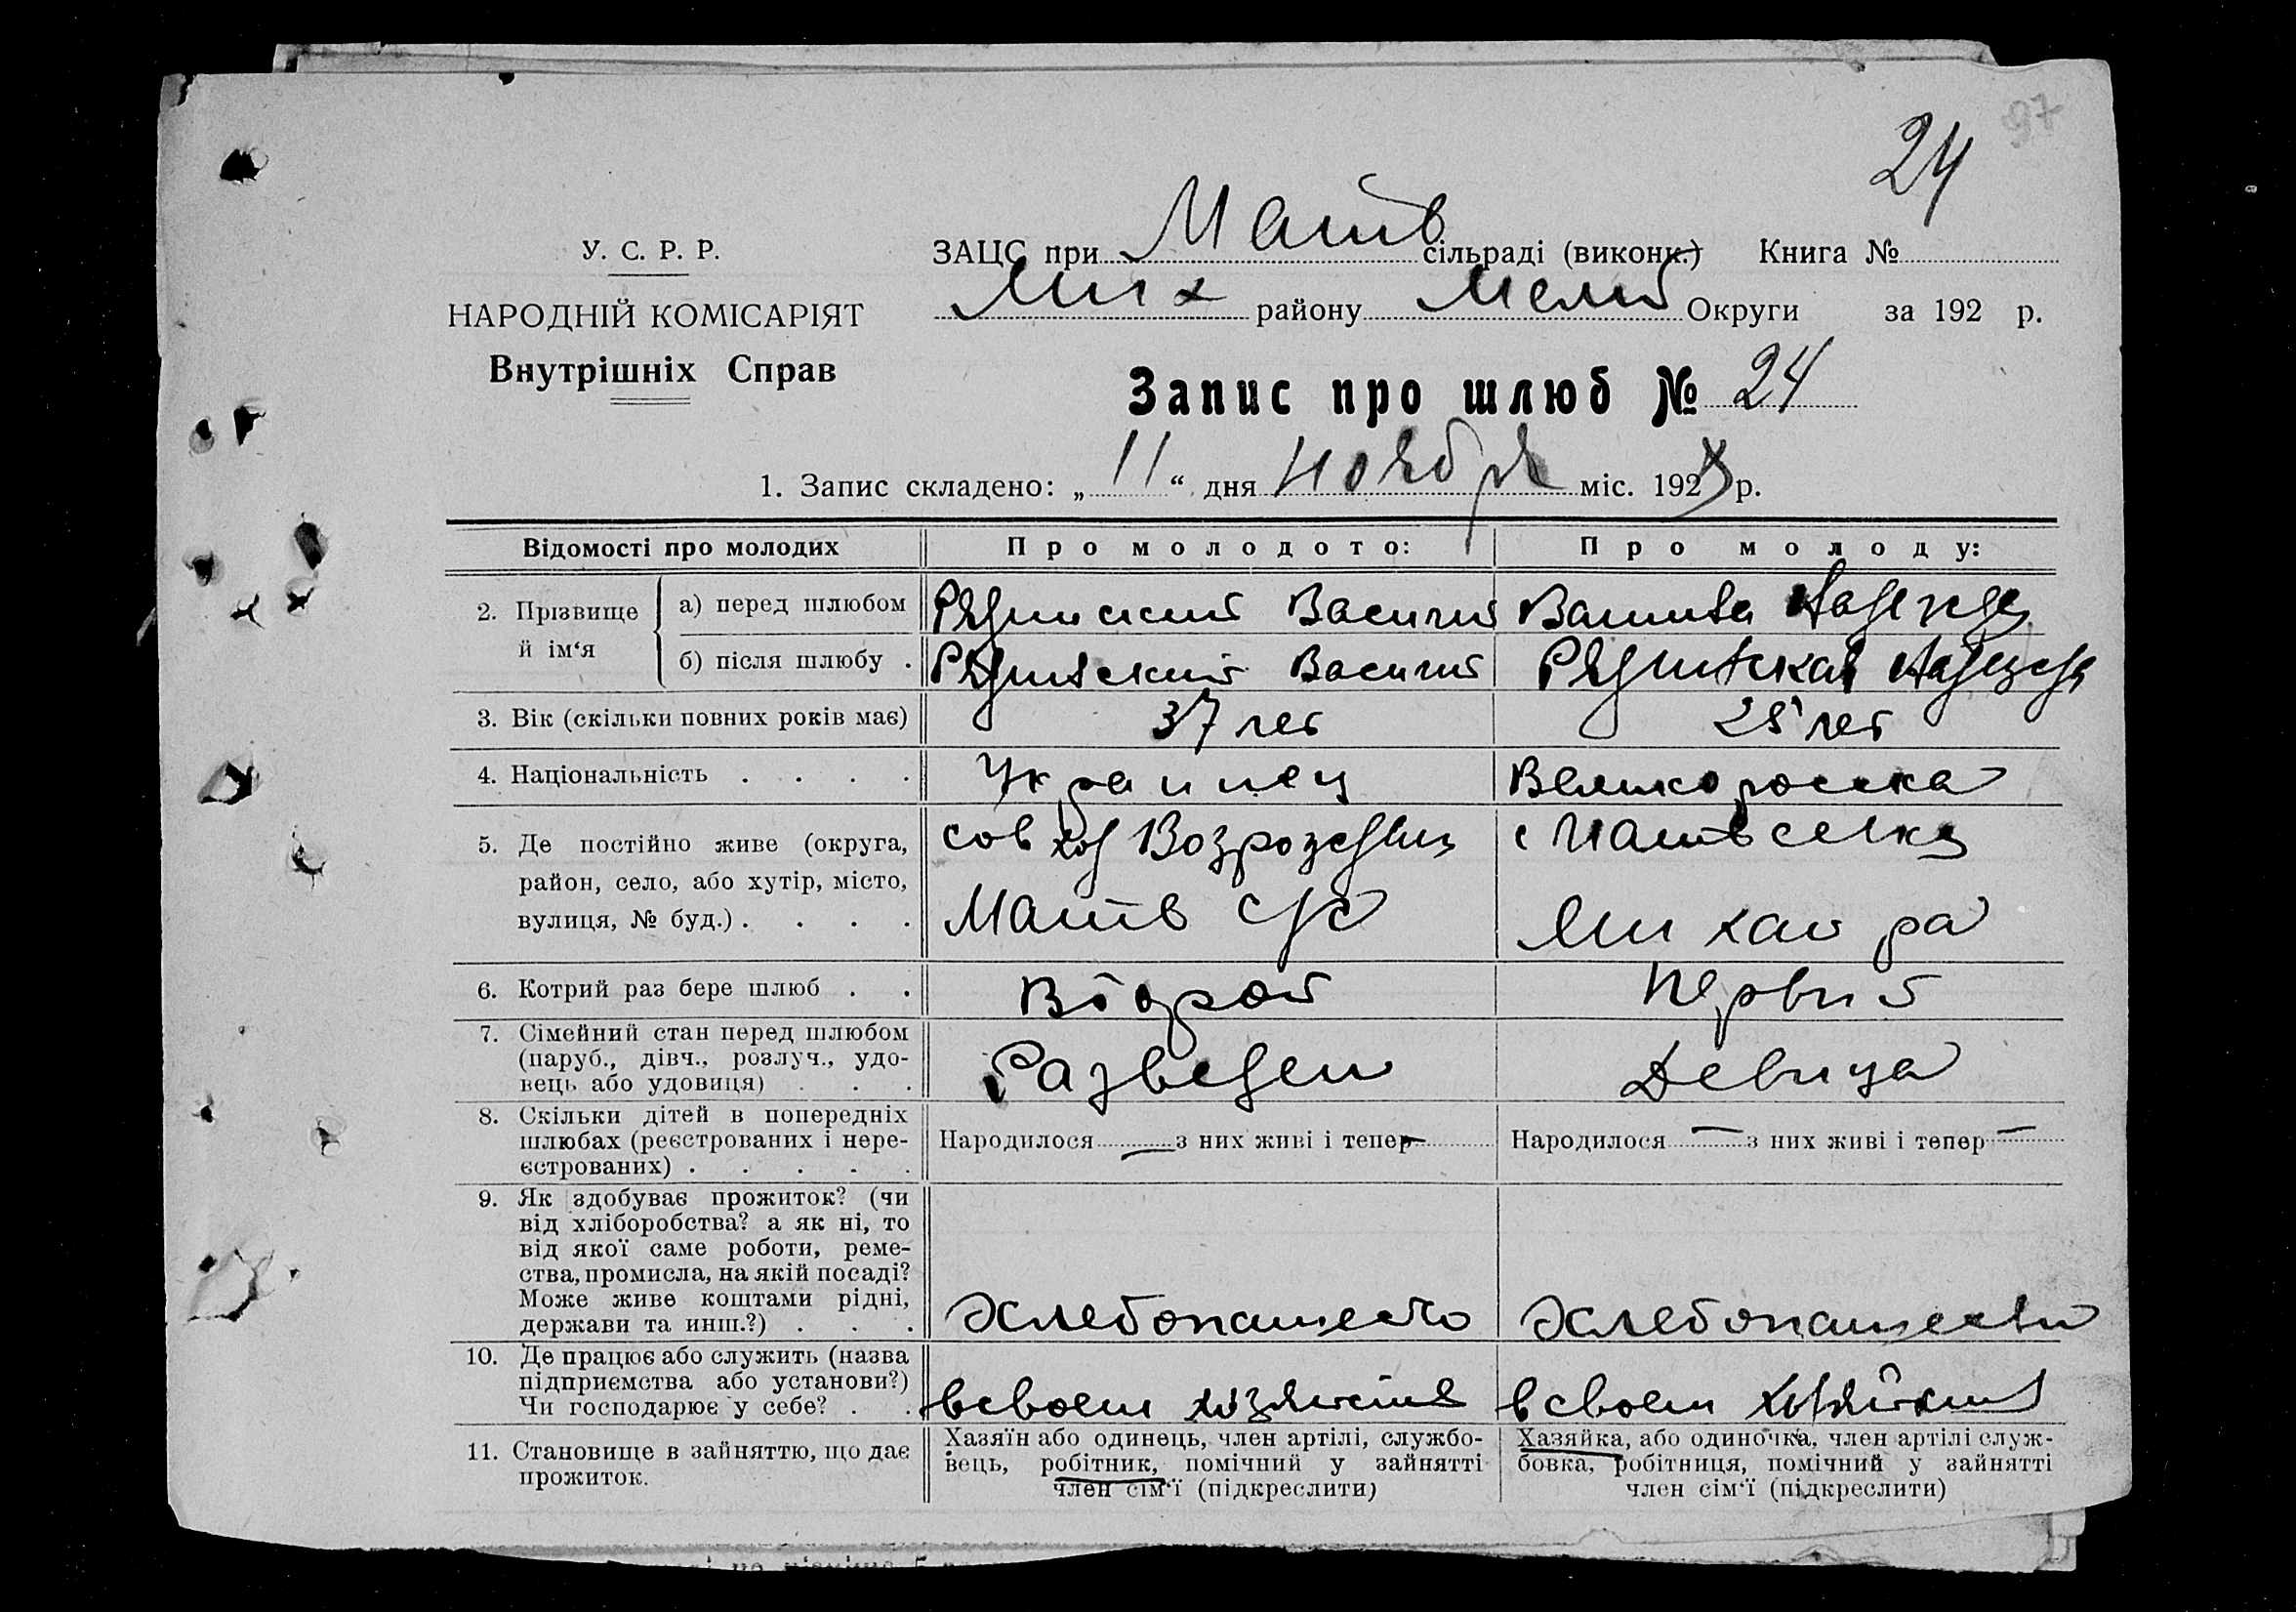 97
24
У. С. Р. Р.
НАРОДНІЙ КОМІСАРІЯТ
Внутрішніх Справ
ЗАЦС при Матв сільраді (виконк.) Книга №
Мих району Мелит Округи за 192 р.
Запис про шлюб № 24
1. Запис складено: „ 11 “ дня Ноября міс. 192 р.
Відомості про молодих Про молодого: Про молоду:
2. Прізвище й ім‘я
а) перед шлюбом Рядинский Василий Надежда
б) після шлюбу . Рядинский Василий Рядинская Надежда
3. Вік (скільки повних років має) 37 лет 25 лет
4. Національність . . . . Украинец Великоросска
5. Де постійно живе (округа, район, село, або хутір, місто, вулиця, № буд.) . . . .
совхоз
Матв с/с
с
Михай ра
6. Котрий раз бере шлюб . . Второй Первий
7. Сімейний стан перед шлюбом (паруб., дівч., розлуч., удовець або удовиця) . . . Разведен Девица
8. Скільки дітей в попередніх шлюбах (реєстрованих і нереєстрованих) . . . . .
Народилося — з них живі і тепер —
Народилося — з них живі і тепер —
9. Як здобуває прожиток? (чи від хліборобства? а як ні, то від якої саме роботи, ремества, промисла, на якій посаді? Може живе коштами рідні, держави та инш.?) . . . Хлебопашество Хлебопашество
10. Де працює або служить (назва підприємства або установи?) Чи господарює у себе? . . в своем хозяйстве в своем хозяйстве
11. Становище в зайняттю, що дає прожиток.
Хазяїн або одинець, член артілі, службовець, робітник, помічний у зайнятті член сім‘ї (підкреслити)
Хазяйка, або одиночка, член артілі службовка, робітниця, помічний у зайнятті член сім‘ї (підкреслити)